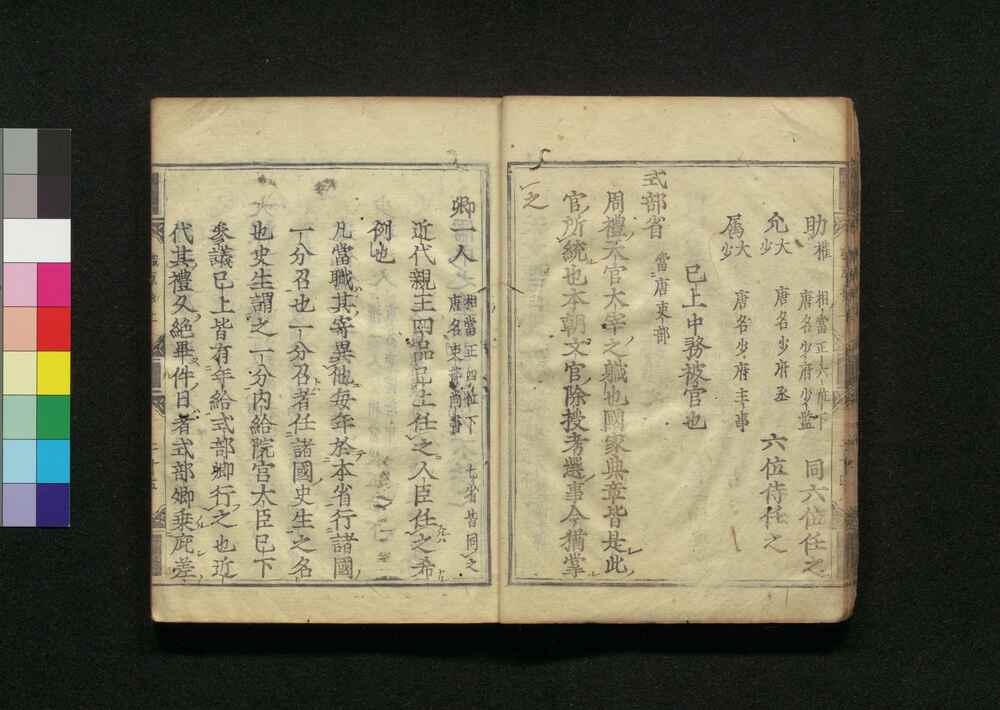 助 権 相當正六位下 唐名少府少監 同六位任之
允 大少 唐名少府丞 六位侍任之
属 大少 唐名少府主事
已上中務被官也
式部省 當唐吏部
周禮天官太宰之職也國家典章皆是此
官所統也本朝文官除授考選事今猶掌
之
卿一人 相當正四位下 唐名吏部尚書 七省皆同之
近代親王四品已上任之人臣任之希
例也
凡當職其寄異他每年於本省行諸國
一分召也一分召者任諸國史生之名
也史生謂之一分內給院宮太臣已下
參議已上皆有年給式部卿行之也近
代其禮久絕畢件日者式部卿乘庇差